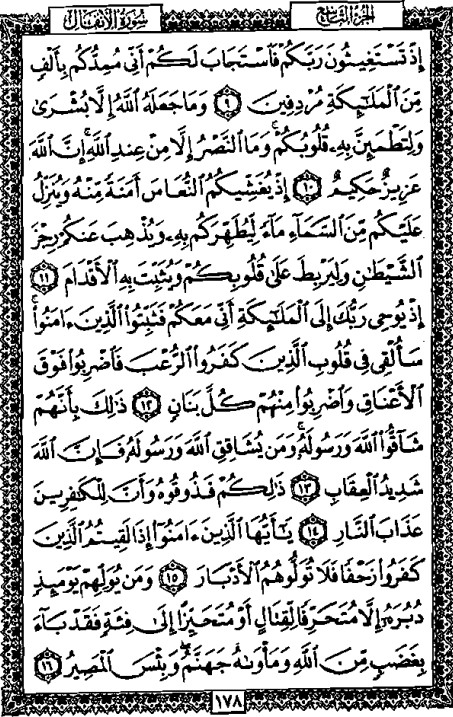 الجزء التاسع
سورة الأنفال
إِذْ تَسْتَغِيثُونَ رَبَّكُمْ فَٱسْتَجَابَ لَكُمْ أَنِّي مُمِدُّكُم بِأَلْفٍ
مِّنَ ٱلْمَلَٰٓئِكَةِ مُرْدِفِينَ ٩ وَمَا جَعَلَهُ ٱللَّهُ إِلَّا بُشْرَىٰ
وَلِتَطْمَئِنَّ بِهِۦ قُلُوبُكُمْ ۚ وَمَا ٱلنَّصْرُ إِلَّا مِنْ عِندِ ٱللَّهِ ۚ إِنَّ ٱللَّهَ
عَزِيزٌ حَكِيمٌ ١٠ إِذْ يُغَشِّيكُمُ ٱلنُّعَاسَ أَمَنَةً مِّنْهُ وَيُنَزِّلُ
عَلَيْكُم مِّنَ ٱلسَّمَآءِ مَآءً لِّيُطَهِّرَكُم بِهِۦ وَيُذْهِبَ عَنكُمْ رِجْزَ
ٱلشَّيْطَٰنِ وَلِيَرْبِطَ عَلَىٰ قُلُوبِكُمْ وَيُثَبِّتَ بِهِ ٱلْأَقْدَامَ ١١
إِذْ يُوحِي رَبُّكَ إِلَى ٱلْمَلَٰٓئِكَةِ أَنِّي مَعَكُمْ فَثَبِّتُوا۟ ٱلَّذِينَ ءَامَنُوا۟ ۚ
سَأُلْقِي فِي قُلُوبِ ٱلَّذِينَ كَفَرُوا۟ ٱلرُّعْبَ فَٱضْرِبُوا۟ فَوْقَ
ٱلْأَعْنَاقِ وَٱضْرِبُوا۟ مِنْهُمْ كُلَّ بَنَانٍ ١٢ ذَٰلِكَ بِأَنَّهُمْ
شَآقُّوا۟ ٱللَّهَ وَرَسُولَهُۥ ۚ وَمَن يُشَاقِقِ ٱللَّهَ وَرَسُولَهُۥ فَإِنَّ ٱللَّهَ
شَدِيدُ ٱلْعِقَابِ ١٣ ذَٰلِكُمْ فَذُوقُوهُ وَأَنَّ لِلْكَٰفِرِينَ
عَذَابَ ٱلنَّارِ ١٤ يَٰٓأَيُّهَا ٱلَّذِينَ ءَامَنُوٓا۟ إِذَا لَقِيتُمُ ٱلَّذِينَ
كَفَرُوا۟ زَحْفًا فَلَا تُوَلُّوهُمُ ٱلْأَدْبَارَ ١٥ وَمَن يُوَلِّهِمْ يَوْمَئِذٍ
دُبُرَهُۥٓ إِلَّا مُتَحَرِّفًا لِّقِتَالٍ أَوْ مُتَحَيِّزًا إِلَىٰ فِئَةٍ فَقَدْ بَآءَ
بِغَضَبٍ مِّنَ ٱللَّهِ وَمَأْوَىٰهُ جَهَنَّمُ ۖ وَبِئْسَ ٱلْمَصِيرُ ١٦
١٧٨